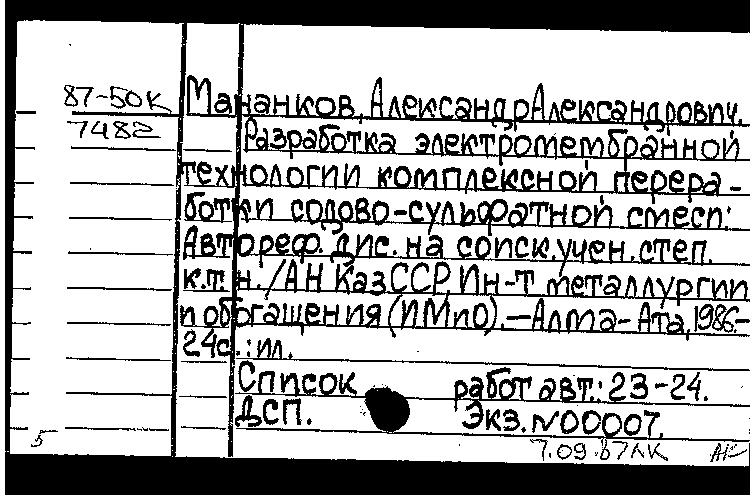 87-50К
7482
Мананков, Александр Александрович.
Разработка электромембранной
технологии комплексной перера-
ботки содово-сульфатной смеси:
Автореф. дис. на соиск. учен. степ.
к.т.н. / АН КазССР, Ин-т металлургии
и обогащения (ИМиО). — Алма-Ата, 1986.-
24с.: ил.
Список работ авт.: 23-24.
ДСП. Экз. N00007.
5 7.09.87